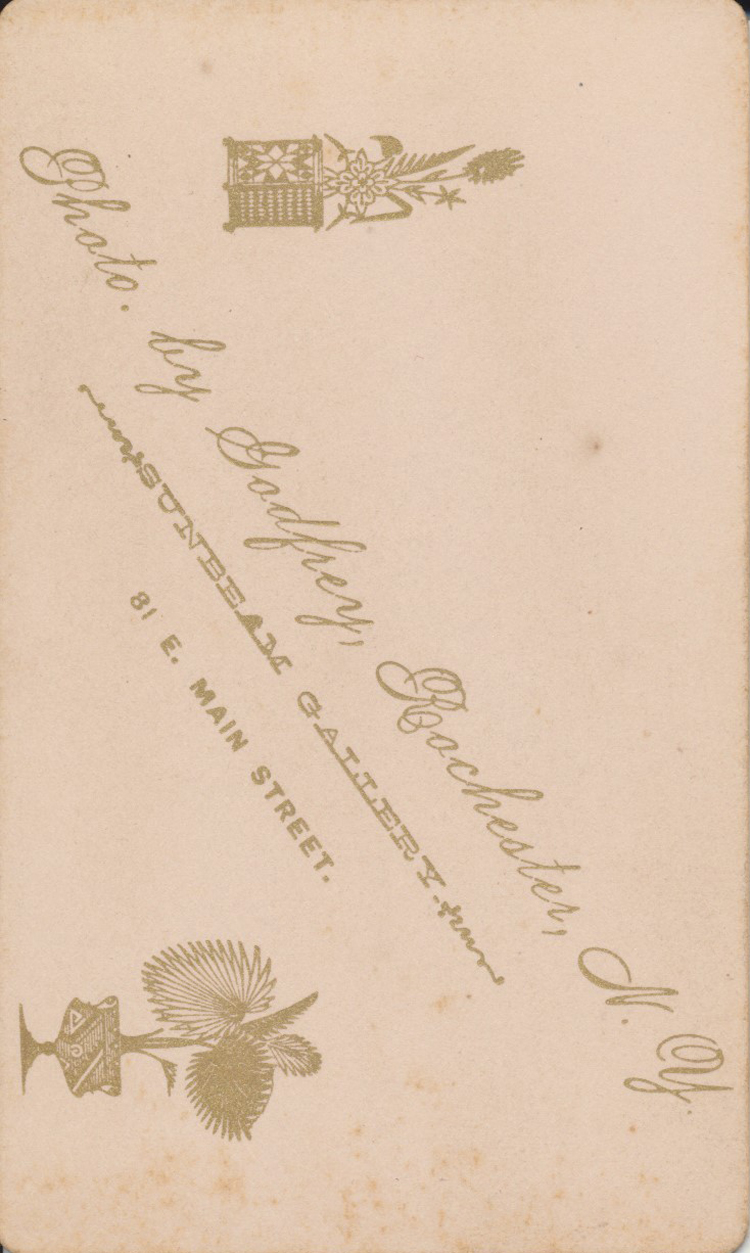 Photo. by Godfrey, Rochester, N. Y.
SUNBEAM GALLERY.
81 E. MAIN STREET.